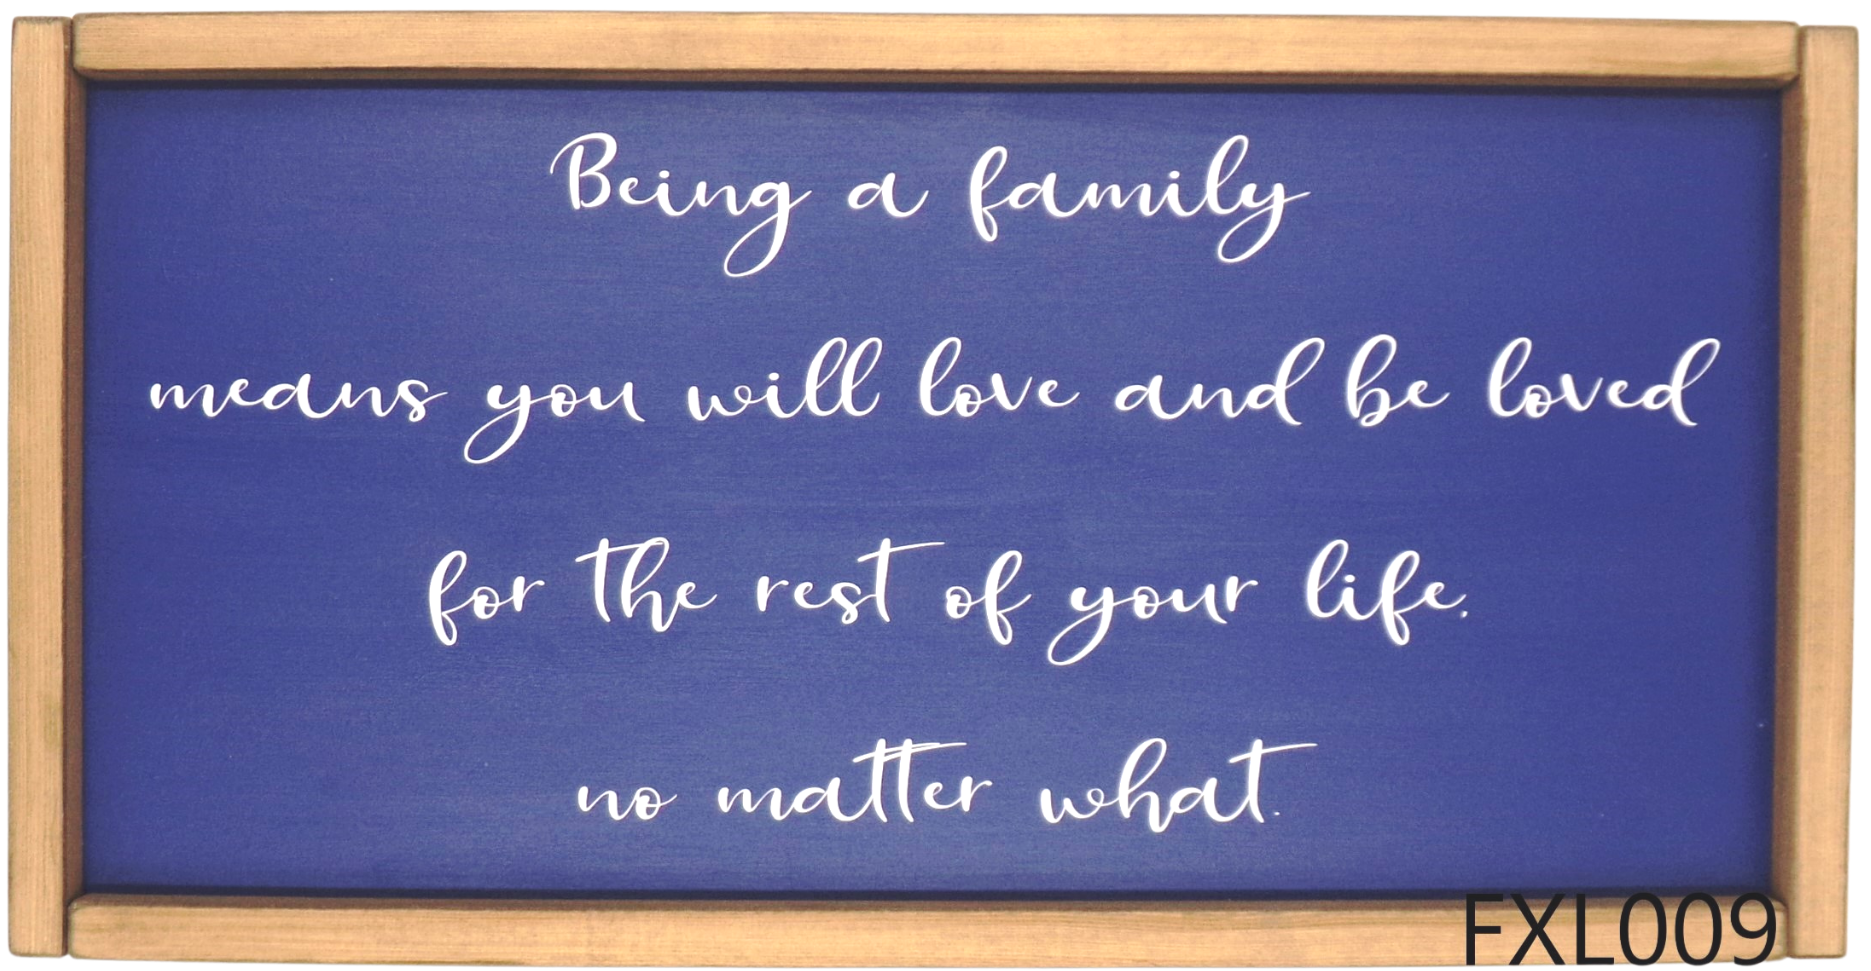 Being a family
means you will love and be loved
for the rest of your life.
no matter what.
FXL009